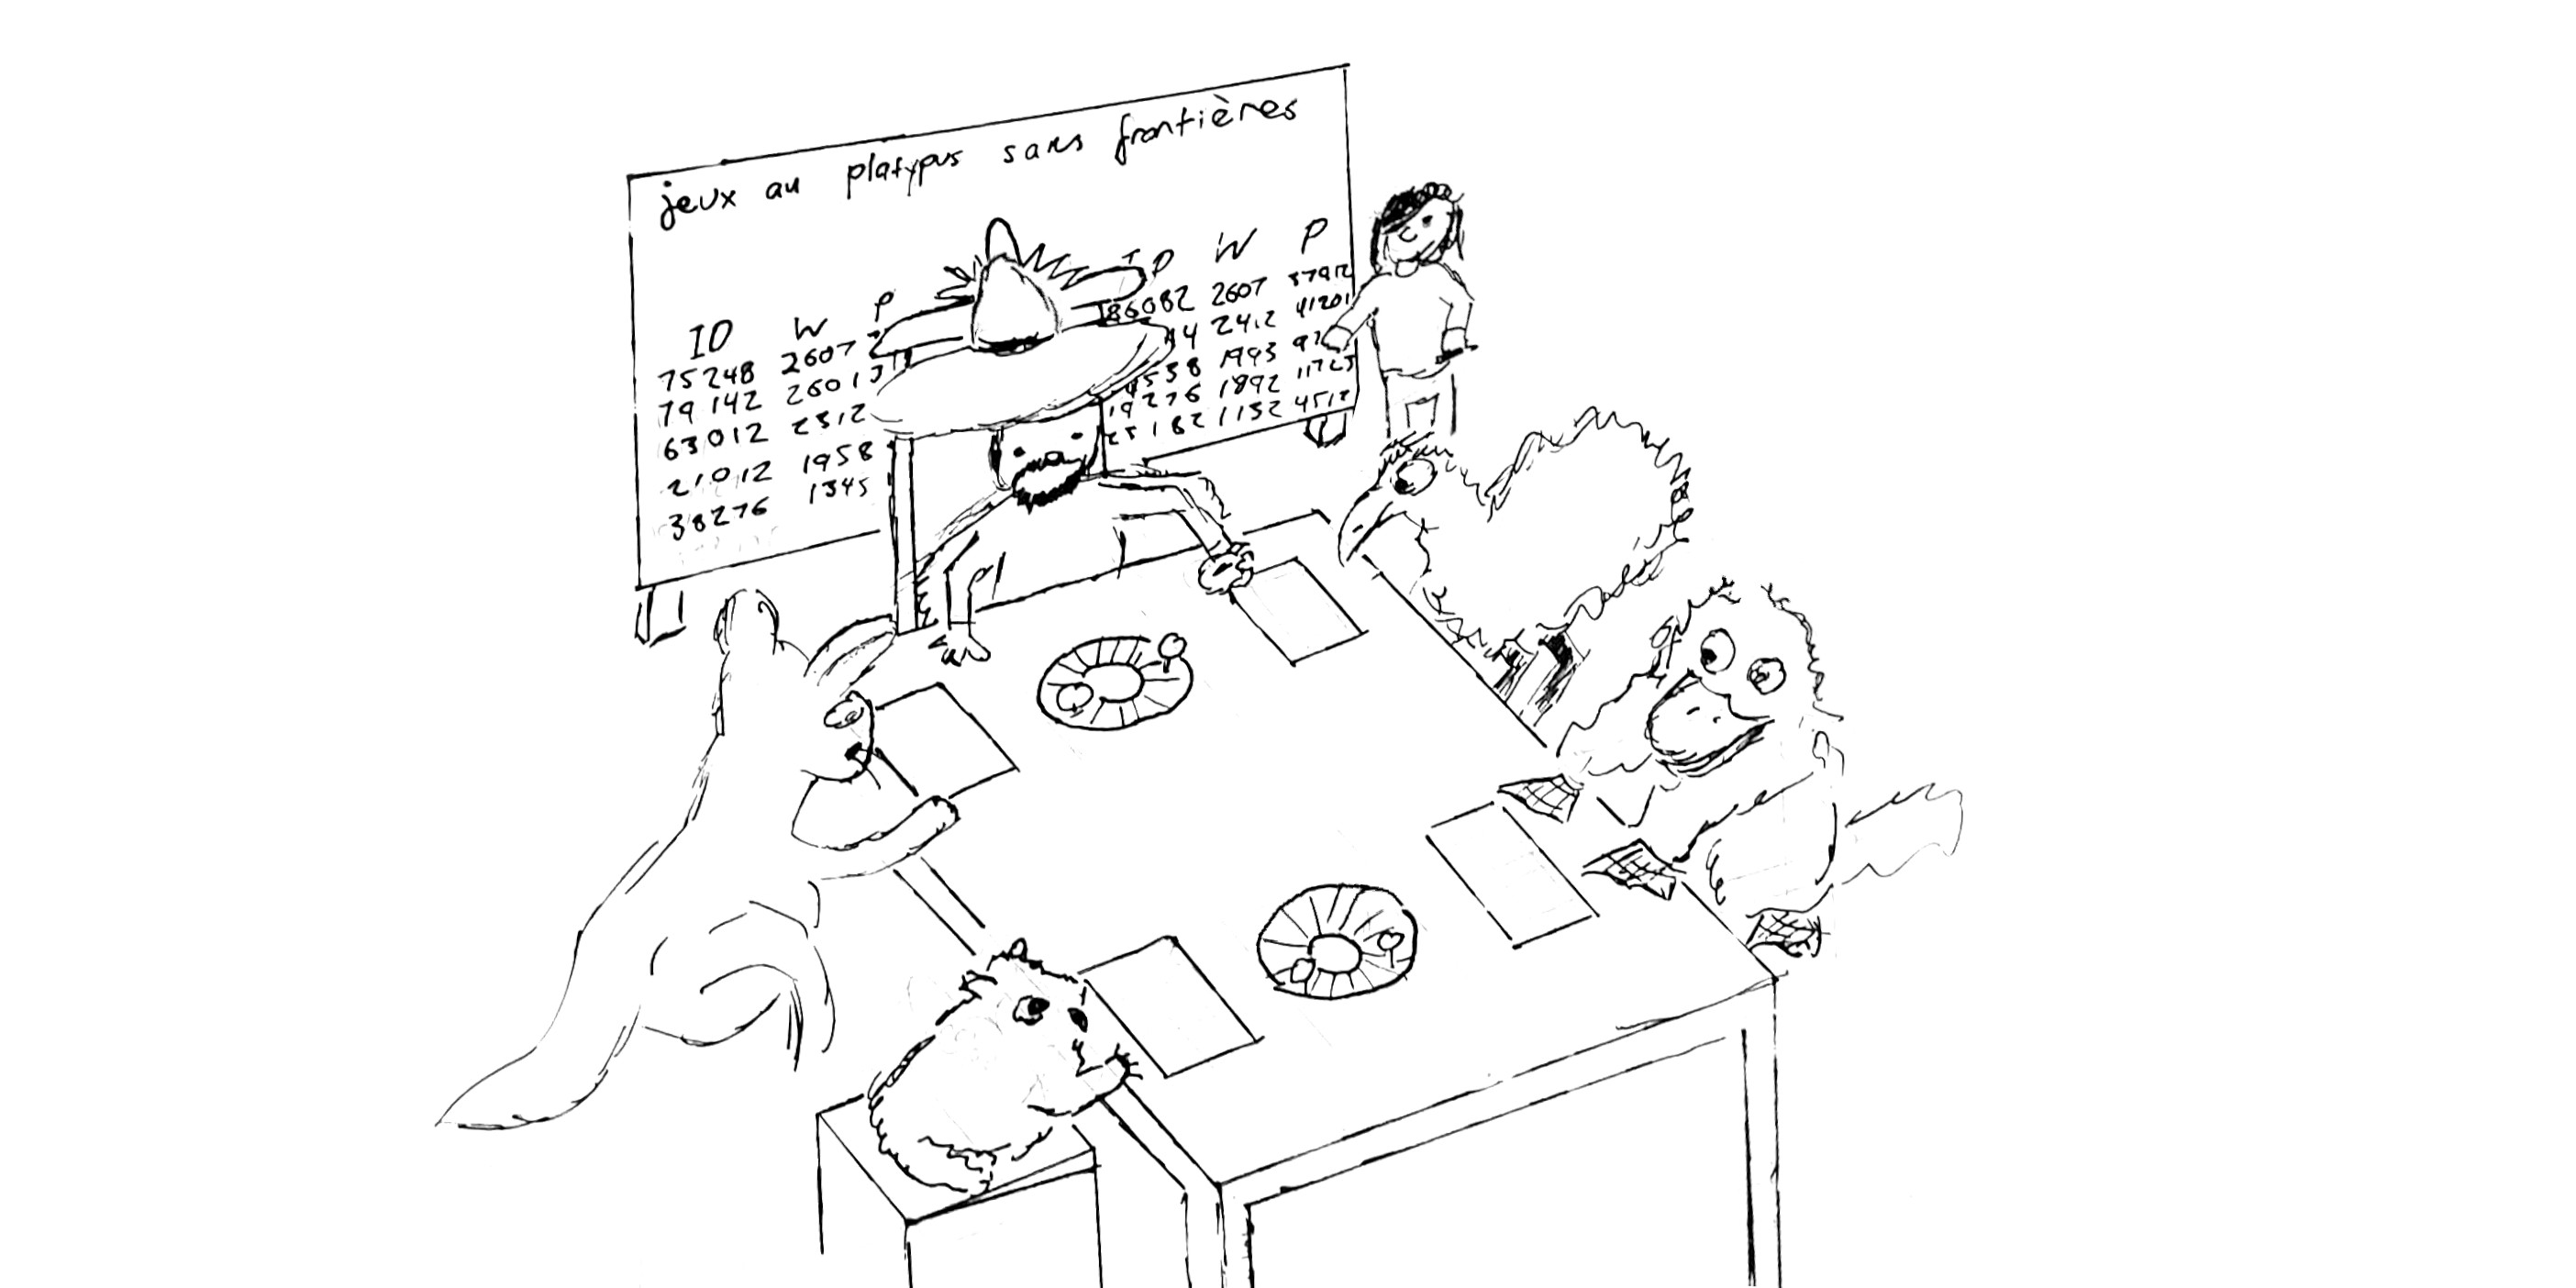 jeux au platypus sans frontières
ID W P
75248 2607
79142 2601
63012 2312
21012 1958
38276 1345
ID W P
86082 2607 37912
44 2412 41201
4538 1993
19276 1892 11723
25182 1132 4512